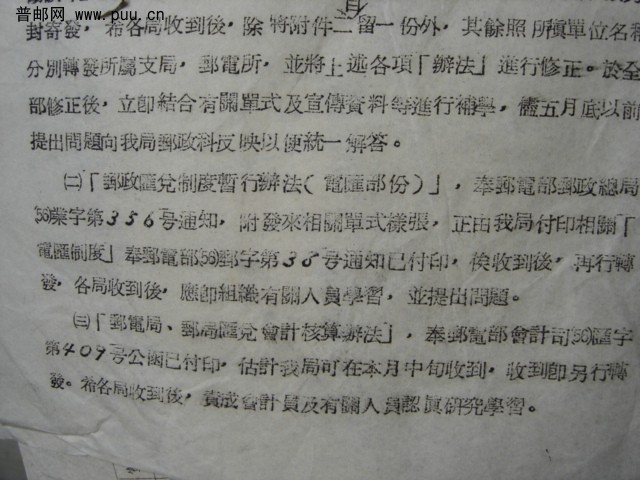 普邮网 www.puu.cn
有
封寄發，希各局收到後，除將附件二留一份外，其餘照所填單位名稱
分別轉發所屬支局，郵電所，並將上述各項「辦法」進行修正。於全
部修正後，立即結合有關單式及宣傳資料等進行補學，儘五月底以前
提出問題向我局郵政科反映以便統一解答。
㈡「郵政匯兌制度暫行辦法（電匯部份）」，奉郵電部郵政總局
(56)業字第356号通知，附發來相關單式樣張，正由我局付印相關「
電匯制度」奉郵電部(56)郵字第38号通知已付印，俟收到後，再行轉
發，各局收到後，應即組織有關人員學習，並提出問題。
㈢「郵電局、郵局匯兌會計核算辦法」，奉郵電部會計司(56)匯字
第409号公函已付印，估計我局可在本月中旬收到，收到即另行轉
發。希各局收到後，責成會計員及有關人員認眞研究學習。